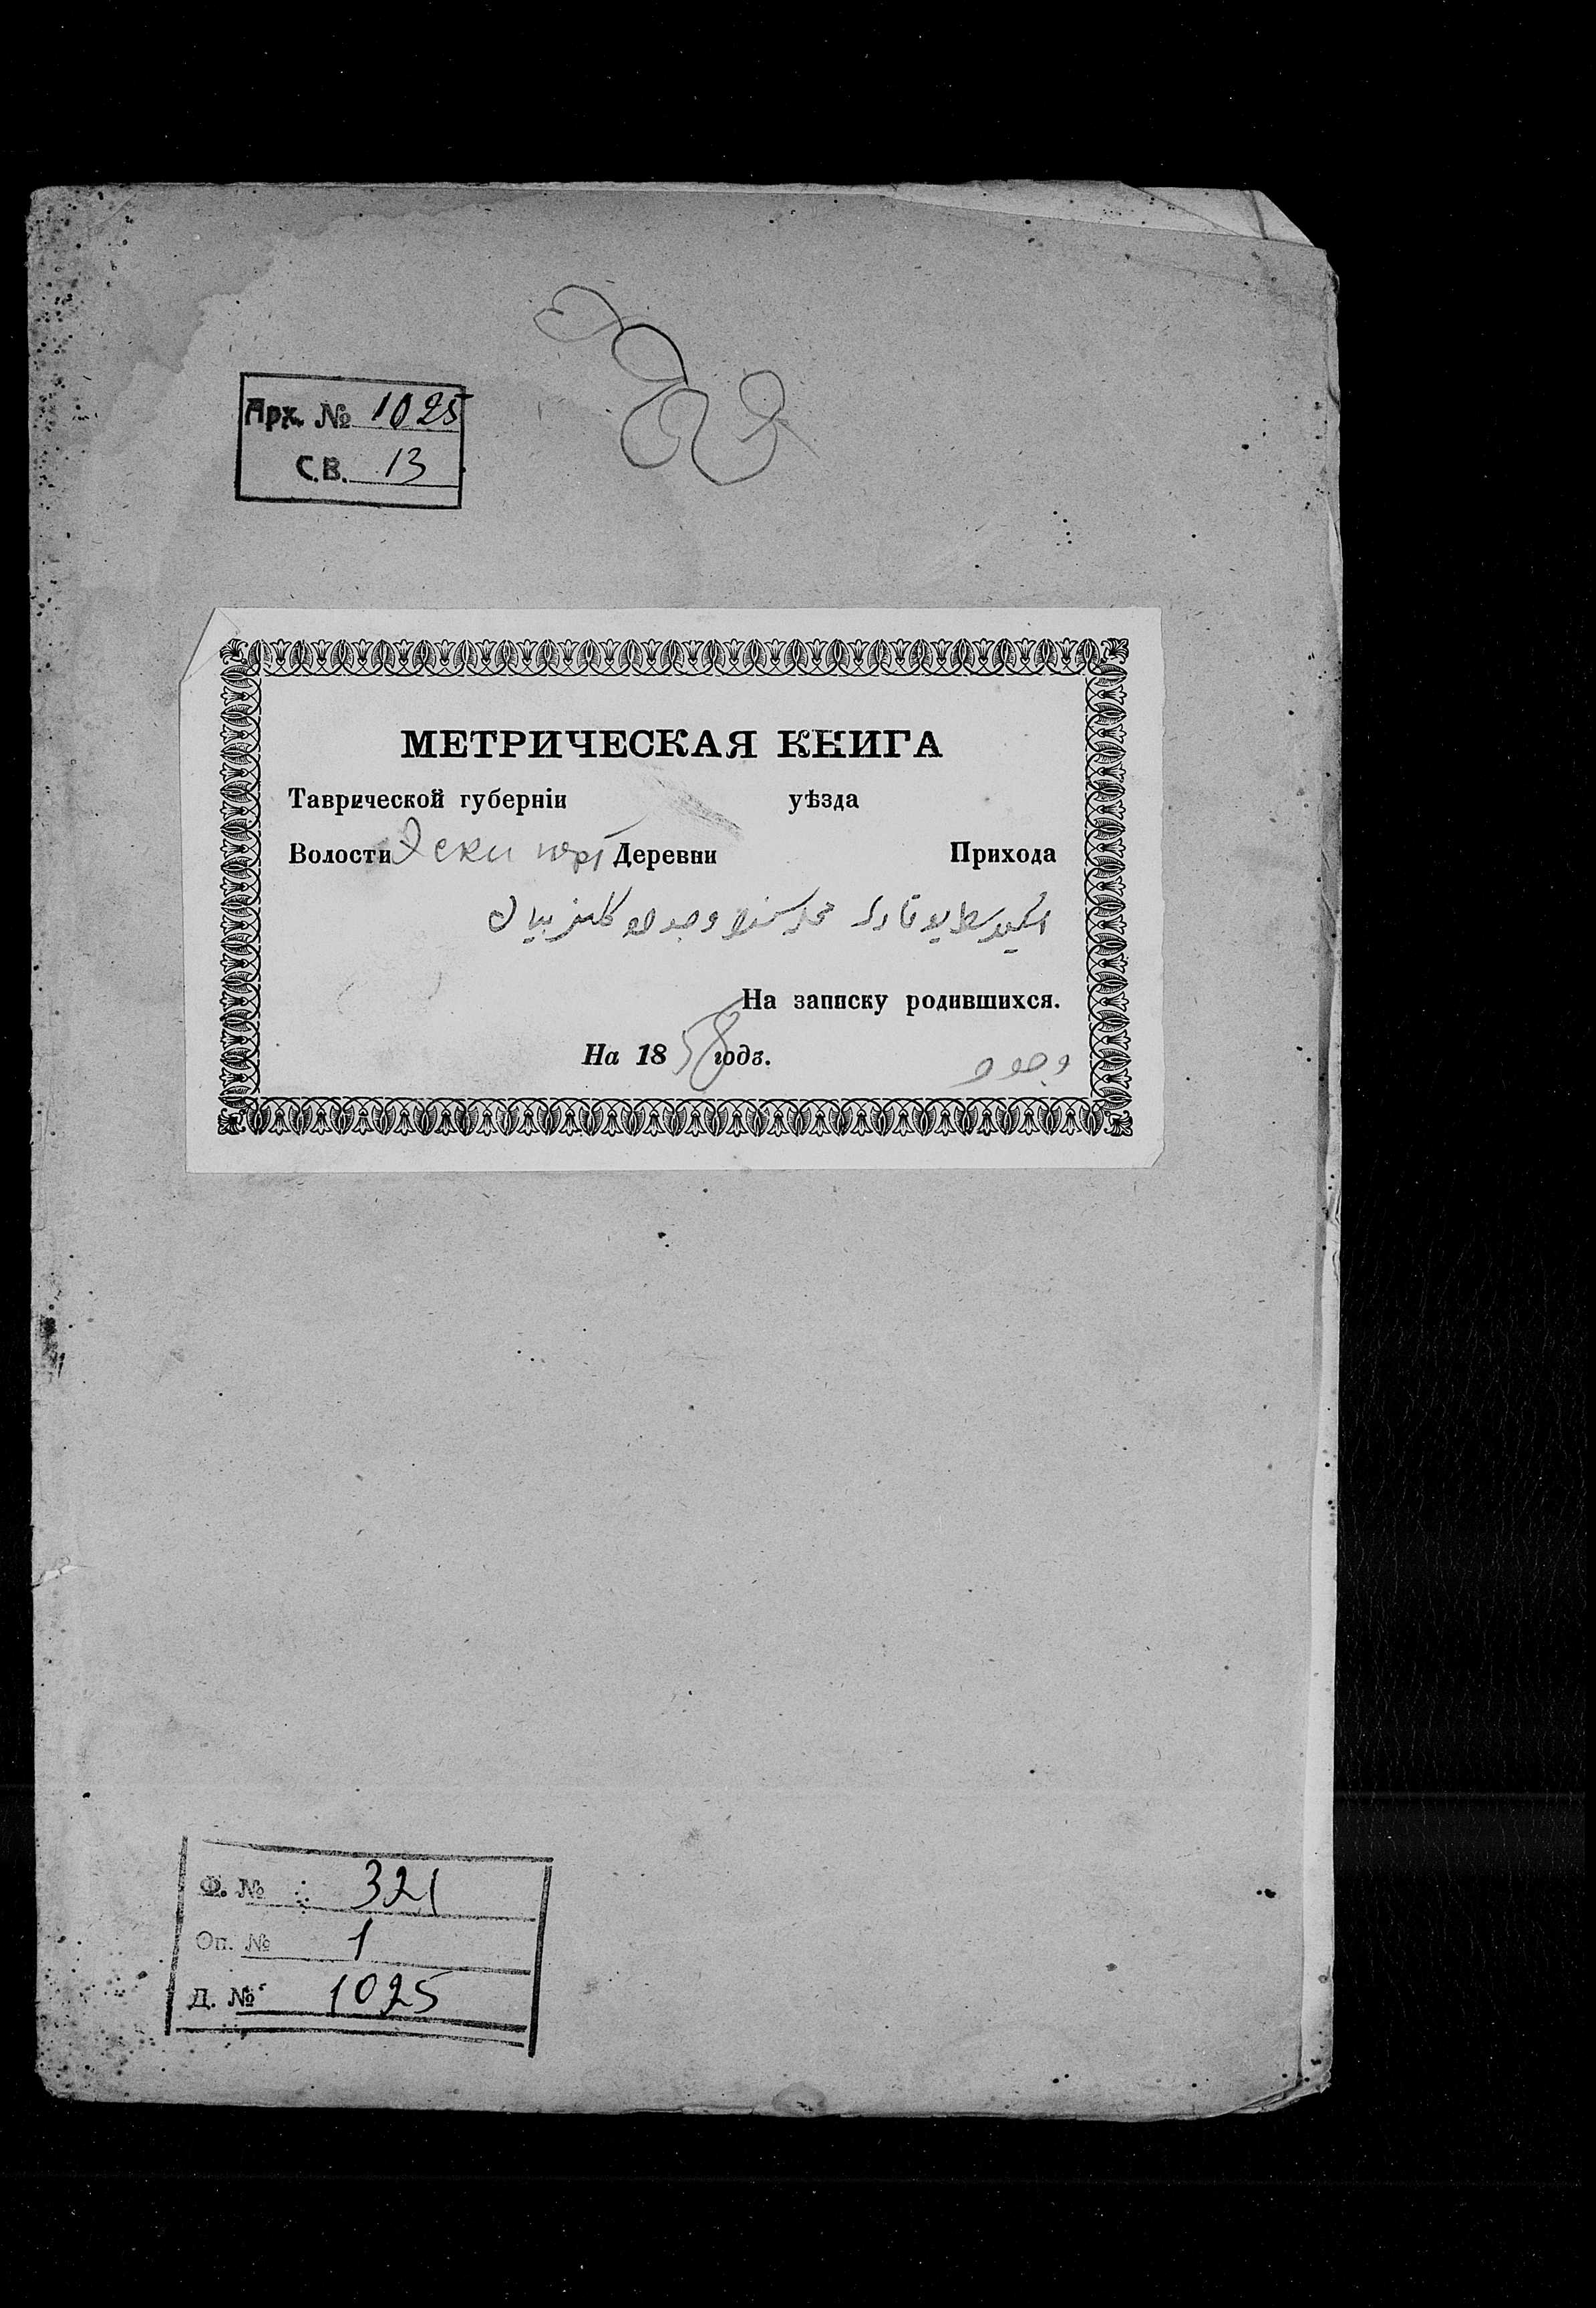 Арх. № 1025
С.В. 13
МЕТРИЧЕСКАЯ КНИГА
Таврической губерніи уѣзда
Волости Эски юрт Деревни Прихода
На записку родившихся.
На 18 58 годъ.
Ф. № 321
Оп. № 1
Д. № 1025